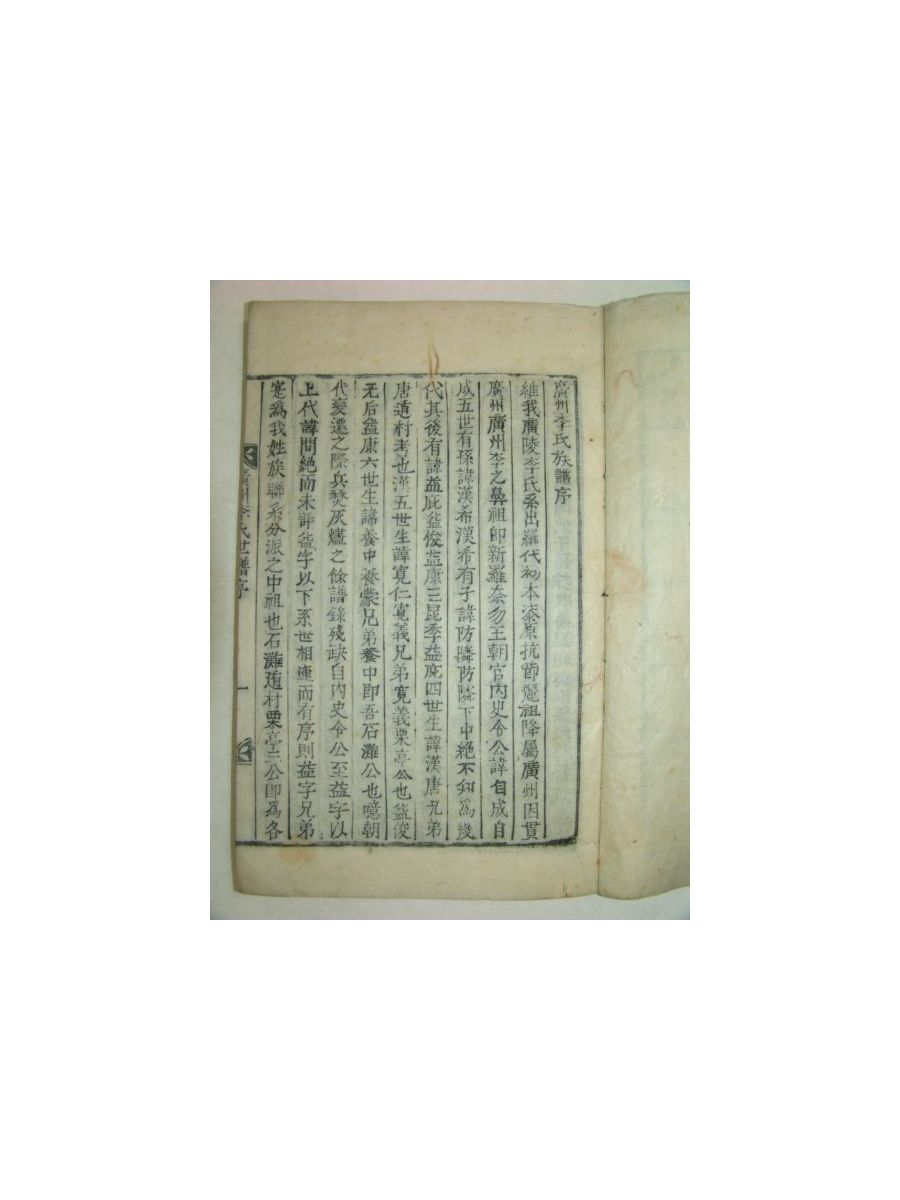 廣州李氏族譜序
維我廣陵李氏系出羅代初本漆原抗節麗祖降屬廣州因貫
廣州廣州李之鼻祖即新羅奈勿王朝官內史令公諱自成自
成五世有孫諱漢希漢希有子諱防隣防隣下中絕不知為幾
代其後有諱益庇益俊益康三昆季益庇四世生諱漢唐兄弟
唐遁村考也漢五世生諱寬仁寬義兄弟寬義栗亭公也益俊
无后益康六世生諱養中養蒙兄弟養中即吾石灘公也噫朝
代變遷之際兵燹灰燼之餘譜錄殘缺自內史令公至益字以
上代諱間絕而未詳益字以下系世相連而有序則益字兄弟
寔為我姓族聯系分派之中祖也石灘遁村栗亭三公即為各
廣州李氏世譜序
一